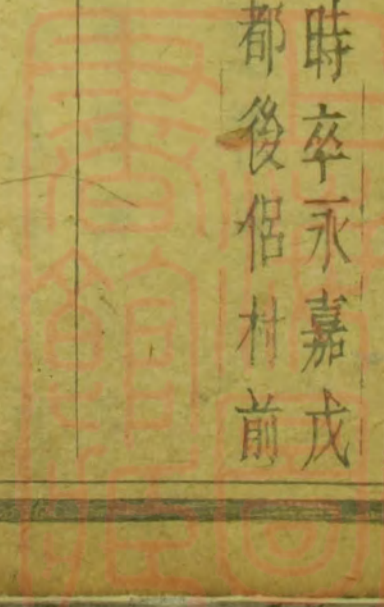 時卒永嘉戊
都後侶村前